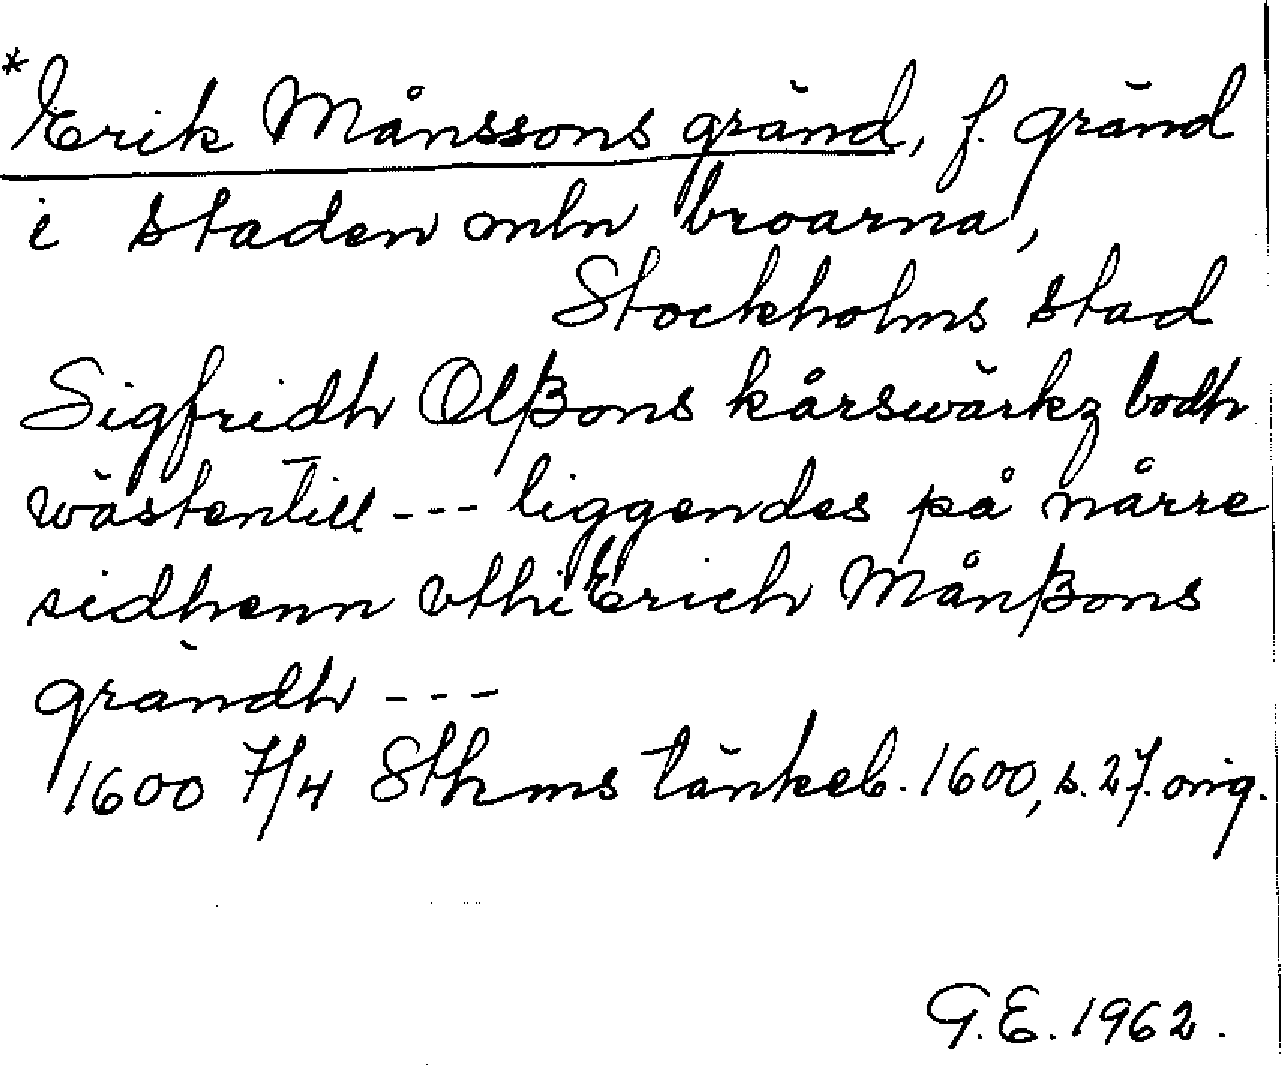 *Erik Månssons gränd, f. gränd
i staden mln broarna,
Stockholms stad
Sigfridh Olßons kårswärkz bodh
wästentill --- liggendes på nårre
sidhenn vthi Erich Månßons
grändh ---
1600 7/4 Sthms tänkeb. 1600, s. 27. orig.
G.E. 1962.